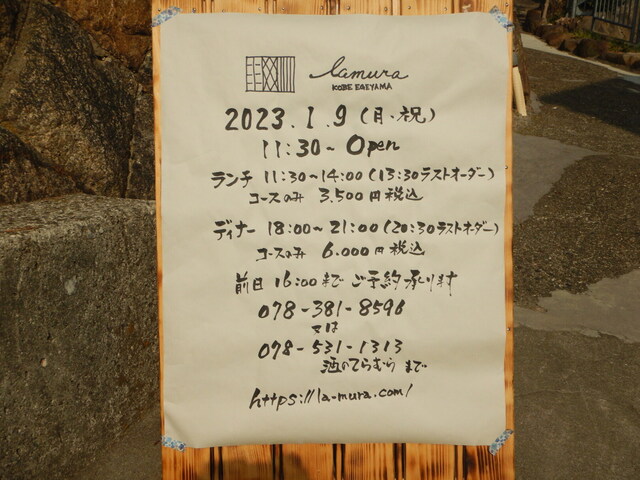 lamura
KOBE EGEYAMA
2023.1.9(月・祝)
11:30~Open
ランチ 11:30~14:00(13:30ラストオーダー)
コースのみ 3,500円税込
ディナー 18:00~21:00(20:30ラストオーダー)
コースのみ 6,000円税込
前日16:00までご予約承ります
078-381-8596
又は
078-531-1313
酒のてらむらまで
https://la-mura.com/